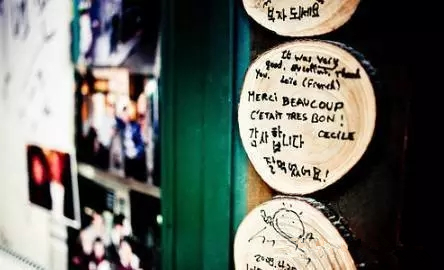 부자 되세요
It was very
good, excellent, thank
You. Loïc (French)
MERCI BEAUCOUP
C'ETAIT TRES BON !
CECILE
감사합니다
잘먹었어요!